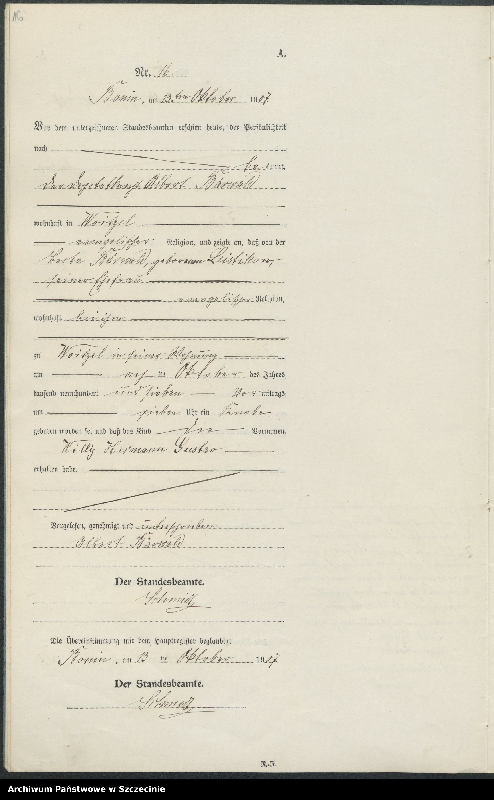 A.
Nr. 16
Konin, am 13ten Oktober 1907
Vor dem unterzeichneten Standesbeamten erschien heute, der Persönlichkeit
nach
kannt,
Der Albert Bärwald
wohnhaft in Woitzel
evangelischer Religion, und zeigte an, daß von der
Bärwald, geborenen
seiner Ehefrau
evangelischer Religion,
wohnhaft bei ihm
zu Woitzel in seiner Wohnung
am ten Oktober des Jahres
tausend neunhundert und sieben Vormittags
um sieben Uhr ein Knabe
geboren worden sei und daß das Kind die Vornamen
Willy Hermann Gustav
erhalten habe.
Vorgelesen, genehmigt und unterschrieben
Albert Bärwald
Der Standesbeamte.
Schmidt
Die Übereinstimmung mit dem Hauptregister beglaubigt
Konin, am 13 ten Oktober 1907
Der Standesbeamte.
Schmidt
Archiwum Państwowe w Szczecinie